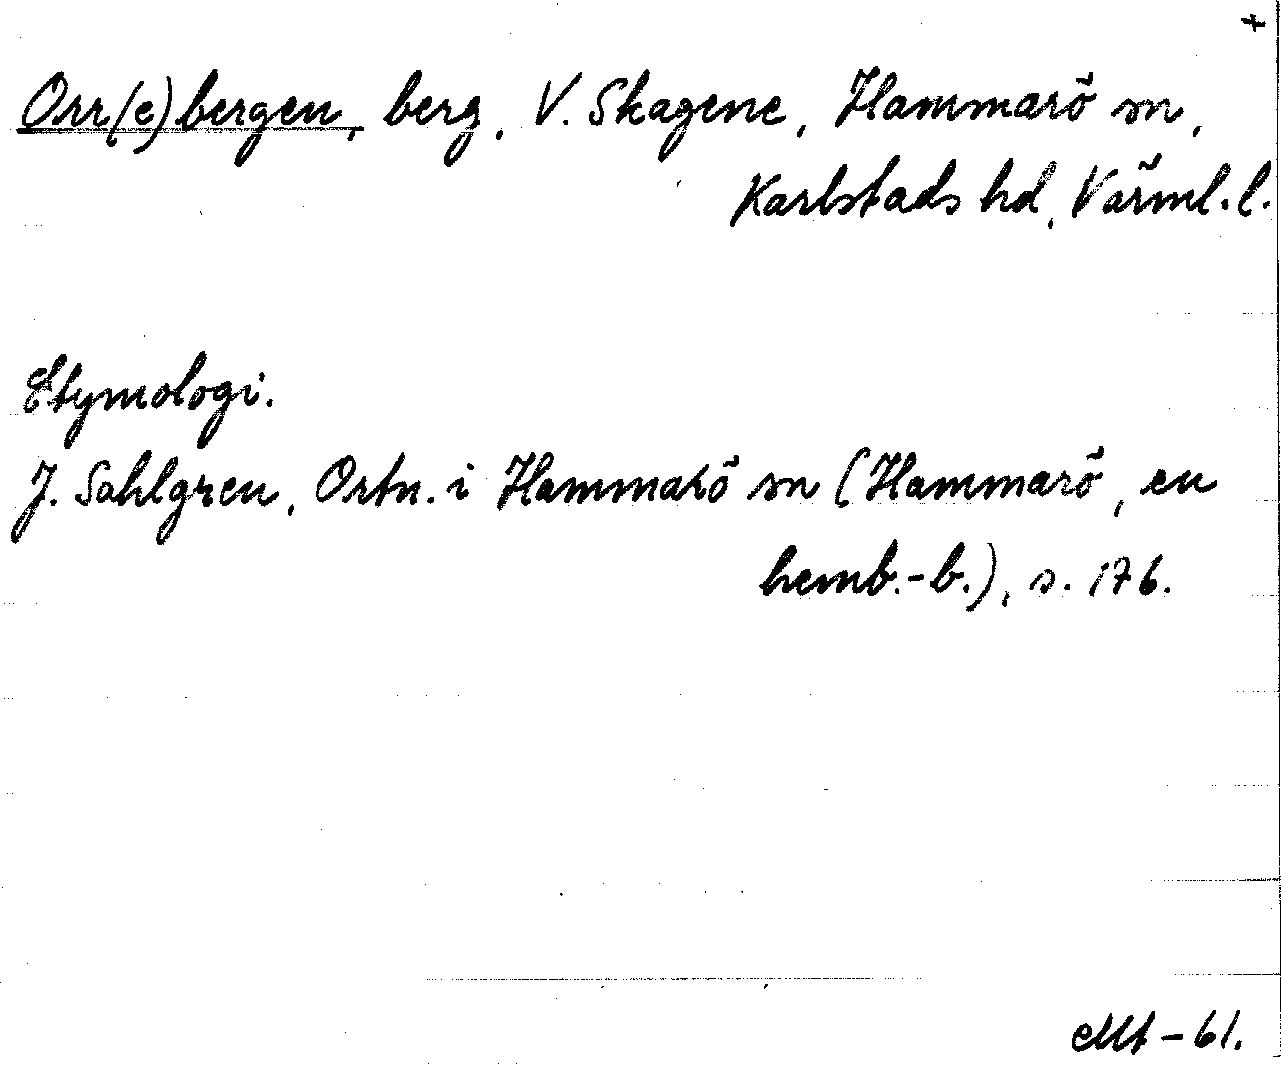 +
Orr(e)bergen, berg, V. Skagene, Hammarö sn,
Karlstads hd, Värml. l.
Etymologi.
J. Sahlgren, Ortn. i Hammarö sn (Hammarö, en
hemb.-b.), s. 176.
-61.